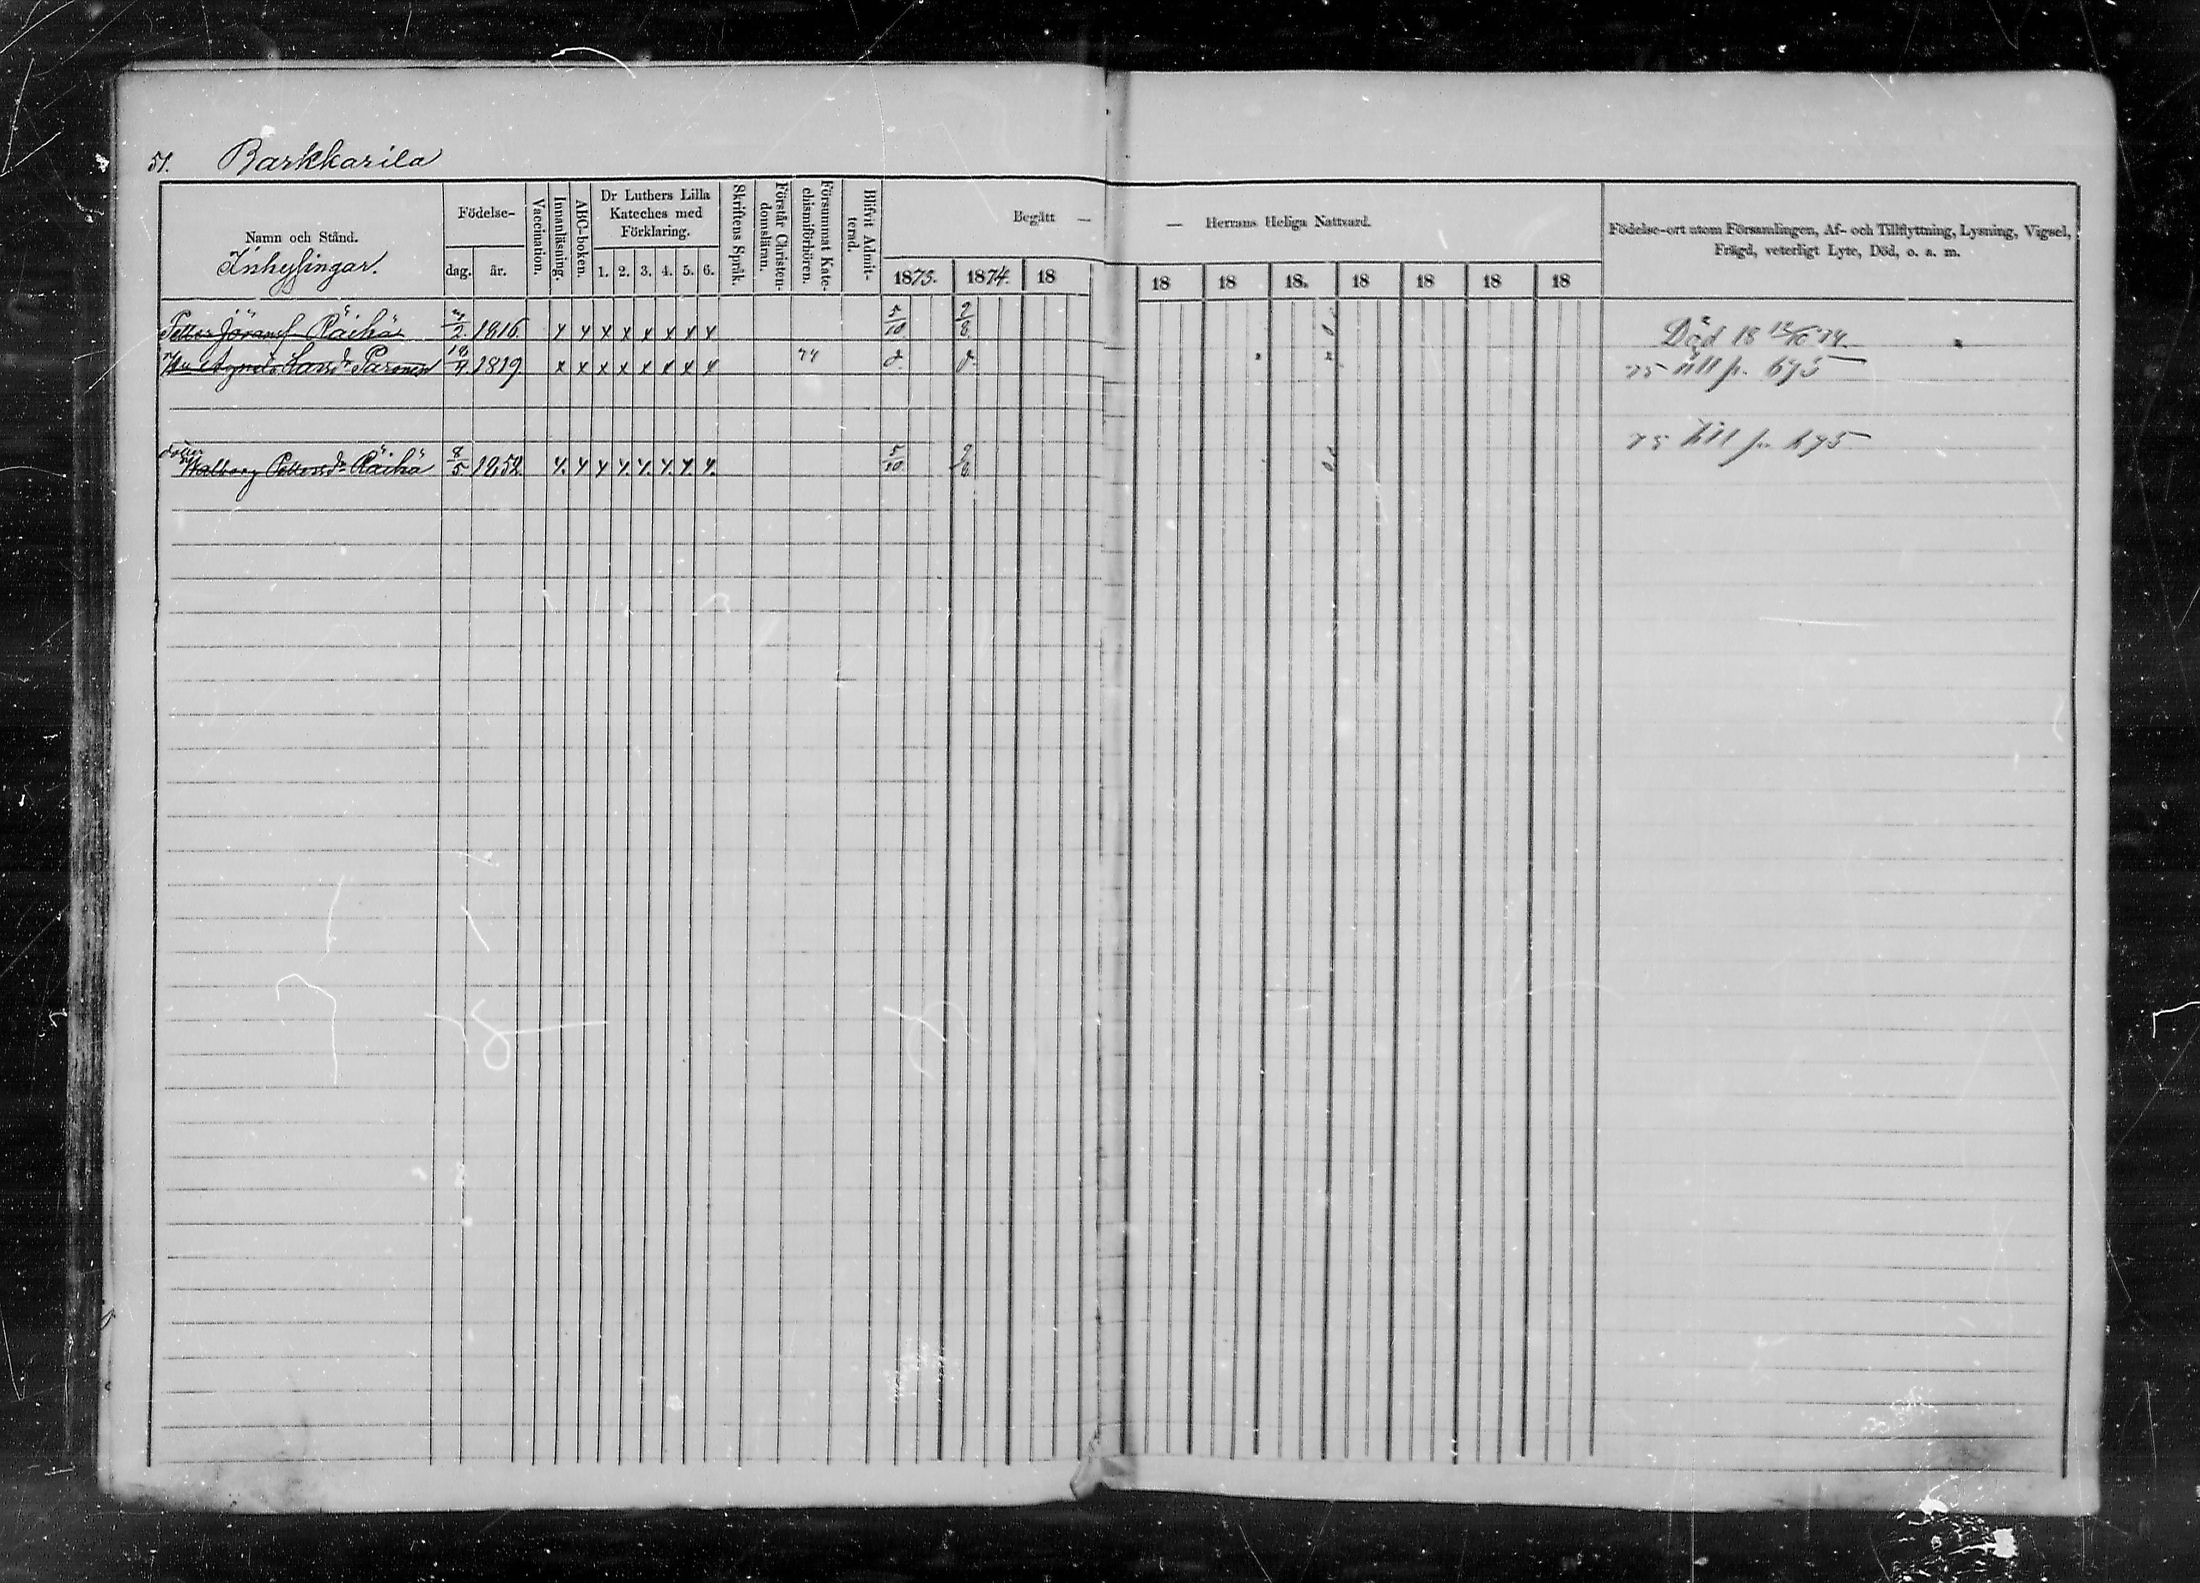 51. Barkkarila
Namn och Stånd.
Inhysingar.
Födelse-
dag. år.
Vaccination.
Innanläsning.
ABC-boken.
Dr Luthers Lilla
Kateches med
Förklaring.
1. 2. 3. 4. 5. 6.
Skriftens Språk.
Förstår Christen-
domsläran.
Försummat Kate-
chismiförhören.
Blifvit Admit-
terad.
Begått —
— Herrans Heliga Nattvard.
1873. 1874. 18 18 18 18. 18 18 18 18
Födelse-ort utom Församlingen, Af- och Tillflyttning, Lysning, Vigsel,
Frägd, veterligt Lyte, Död, o. a. m.
Petter Göransf Räihä 2. 1816. x x x x x x x x 5/10 2/8 Död 18 74
Hu Agneta Larsdr Paronen 1819. x x x x x x x x 74 d. d. 75 till p.
dotter
Walborg Pettersdr Räihä 8/5 1852. x. x x x. x. x. x. x. 5/10 2/8 75 till p.